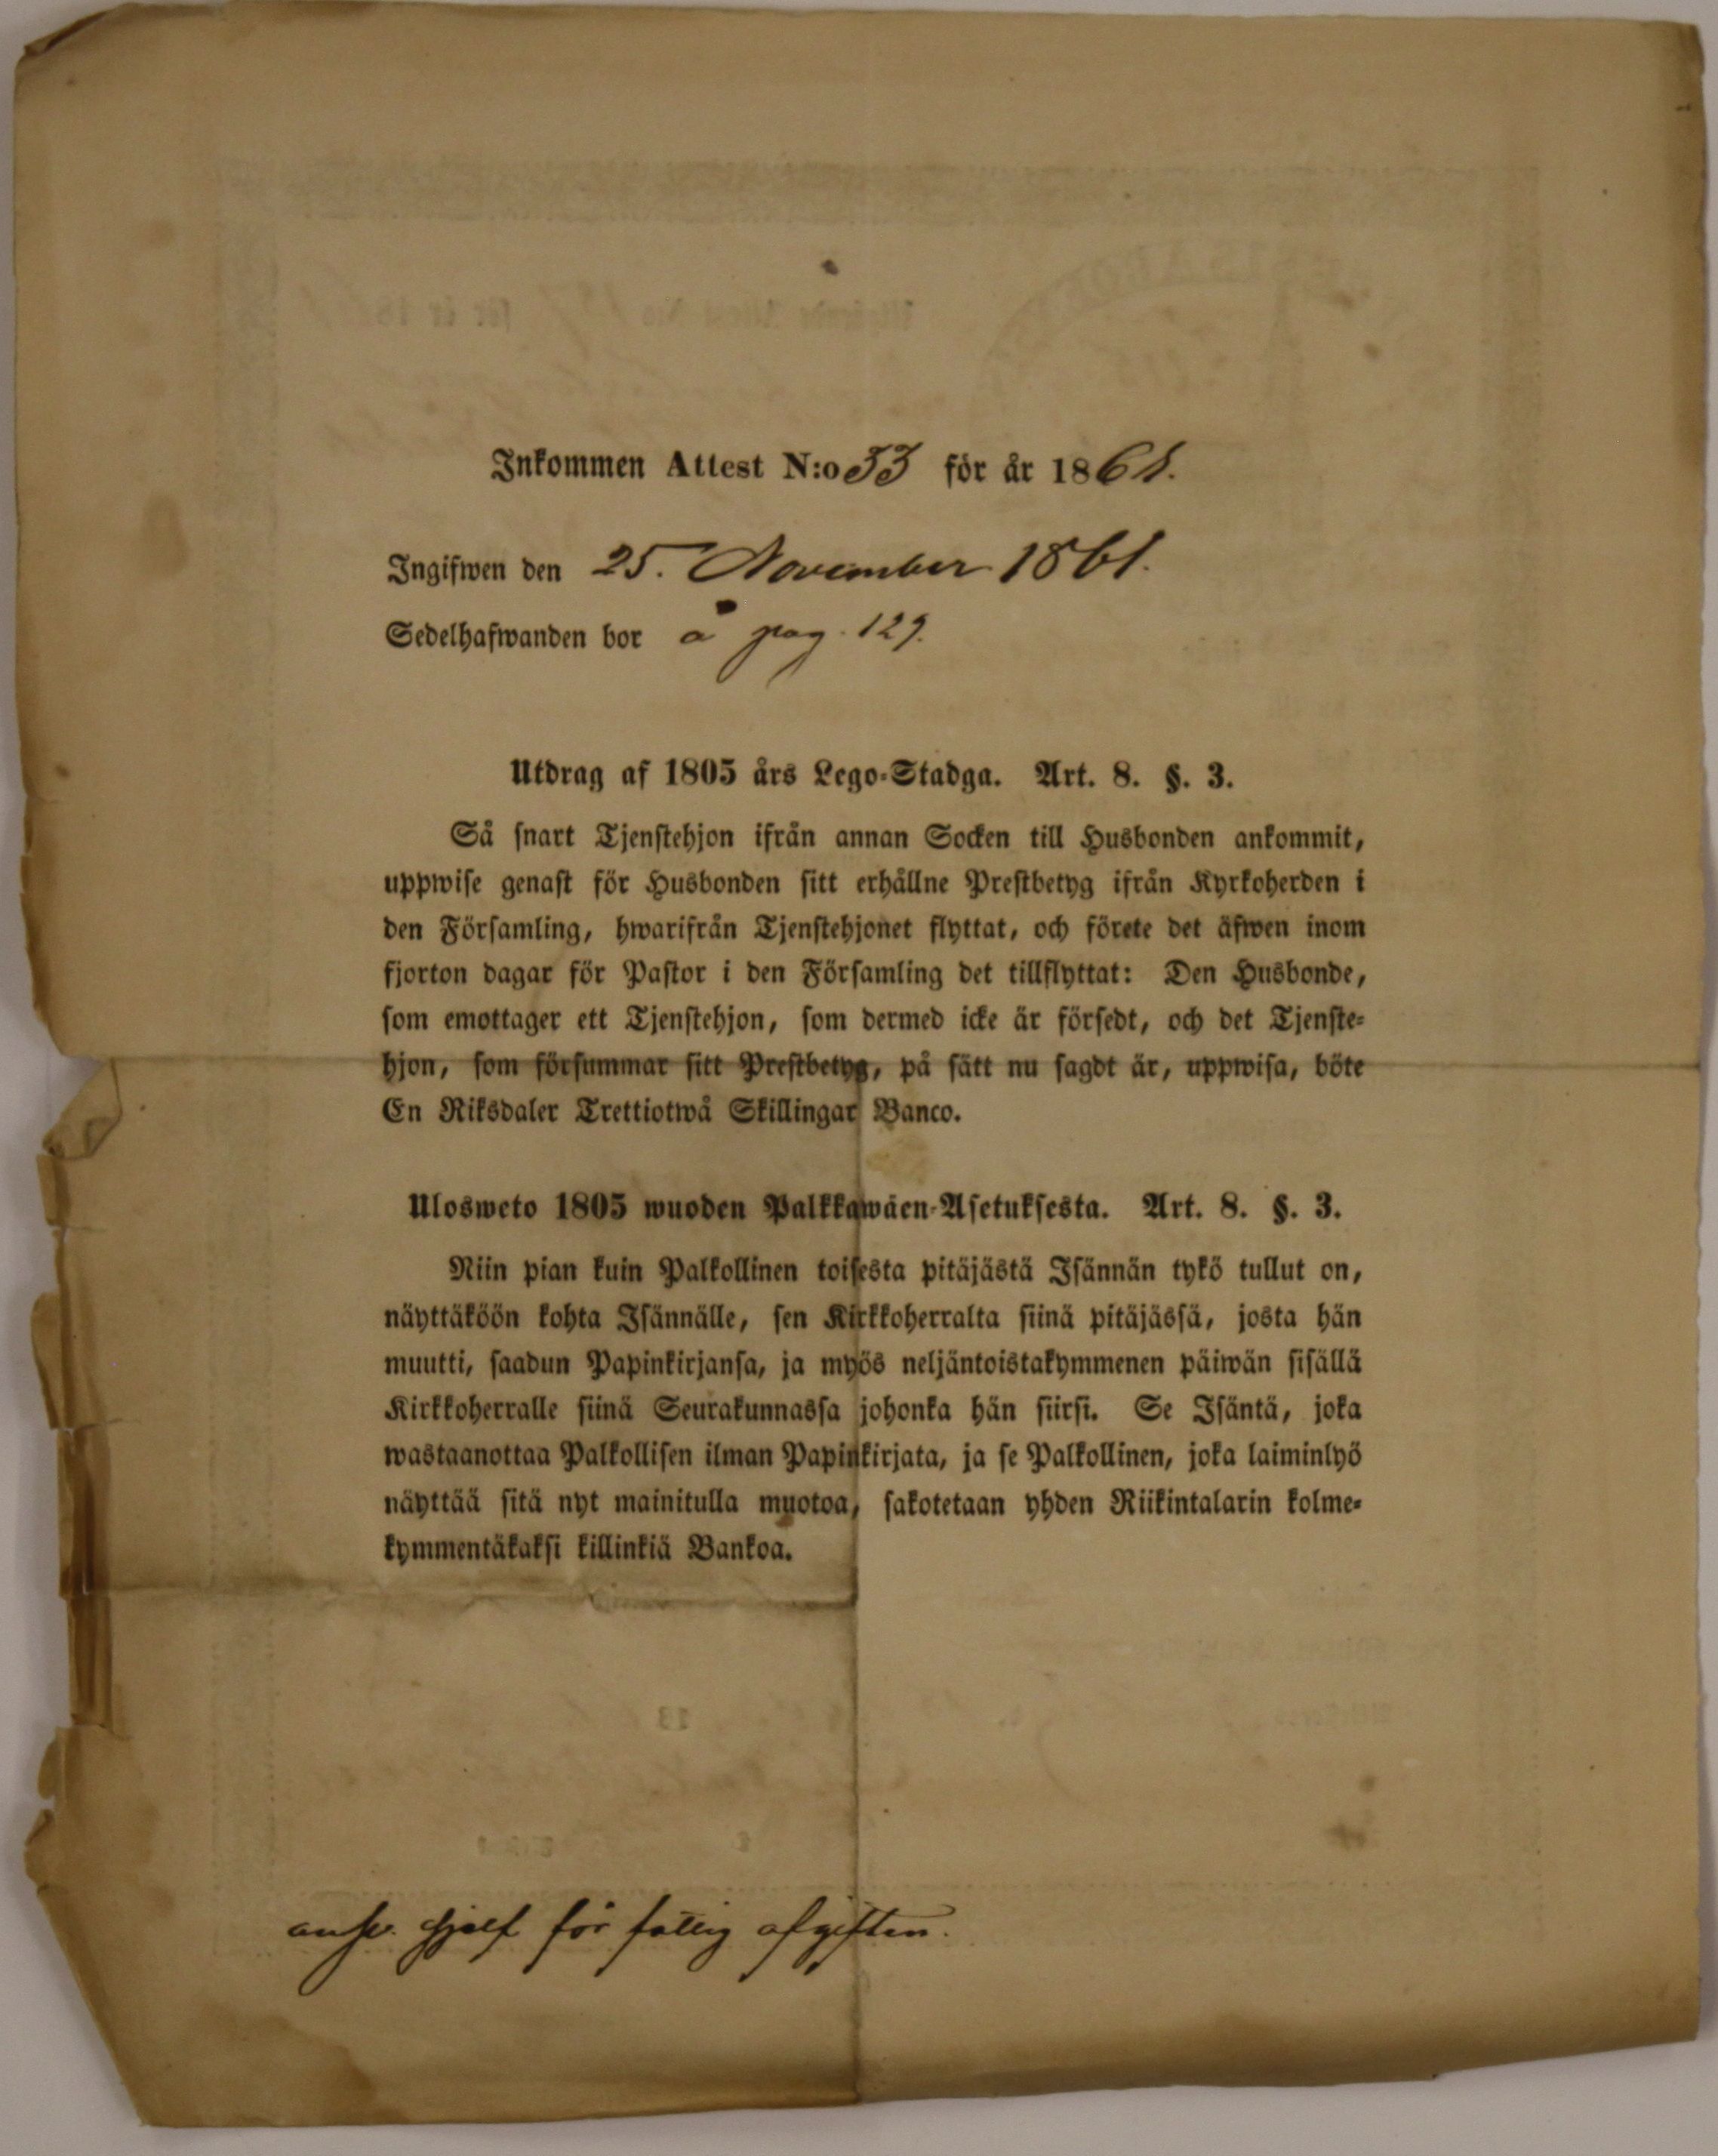 Inkommen Attest N:o 33 för år 1861.
Ingifwen den 25. November 1861.
Sedelhafwanden bor å pag. 129.
Utdrag af 1805 års Lego-Stadga. Art. 8. §. 3.
Så snart Tjenstehjon ifrån annan Socken till Husbonden ankommit,
uppwise genast för Husbonden sitt erhållne Prestbetyg ifrån Kyrkoherden i
den Församling, hwarifrån Tjenstehjonet flyttat, och förete det äfwen inom
fjorton dagar för Pastor i den Församling det tillflyttat: Den Husbonde,
som emottager ett Tjenstehjon, som dermed icke är försedt, och det Tjenste-
hjon, som försummar sitt Prestbetyg, på sätt nu sagdt är, uppwisa, böte
En Riksdaler Trettiotwå Skillingar Banco.
Ulosweto 1805 wuoden Palkkawäen-Asetuksesta. Art. 8. §. 3.
Niin pian kuin Palkollinen toisesta pitäjästä Isännän tykö tullut on,
näyttäköön kohta Isännälle, sen Kirkkoherralta siinä pitäjässä, josta hän
muutti, saadun Papinkirjansa, ja myös neljäntoistakymmenen päiwän sisällä
Kirkkoherralle siinä Seurakunnassa johonka hän siirsi. Se Isäntä, joka
wastaanottaa Palkollisen ilman Papinkirjata, ja se Palkollinen, joka laiminlyö
näyttää sitä nyt mainitulla muotoa, sakotetaan yhden Riikintalarin kolme-
kymmentäkaksi killinkiä Bankoa.
sjelf för fattig afgiften.